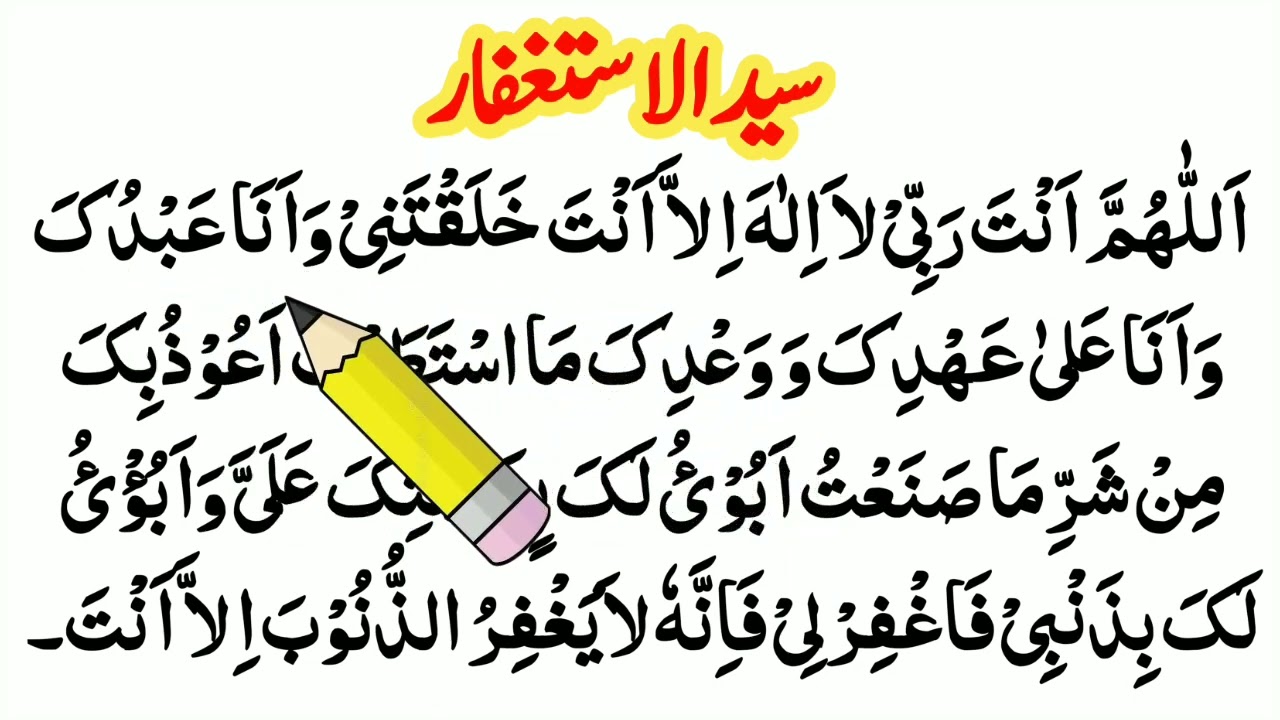 سید الاستغفار
اَللّٰهُمَّ اَنْتَ رَبِّیْ لاَ اِلٰهَ اِلاَّ اَنْتَ خَلَقْتَنِیْ وَ اَنَا عَبْدُکَ
وَ اَنَا عَلیٰ عَهْدِکَ وَ وَعْدِکَ مَا اَعُوْذُبِکَ
مِنْ شَرِّ مَا صَنَعْتُ اَبُوْئُ لَکَ عَلَیَّ وَ اَبُوْئُ
لَکَ بِذَنْبِیْ فَاغْفِرْلِیْ فَاِنَّهٗ لاَ یَغْفِرُ الذُّنُوْبَ اِلاَّ اَنْتَ۔